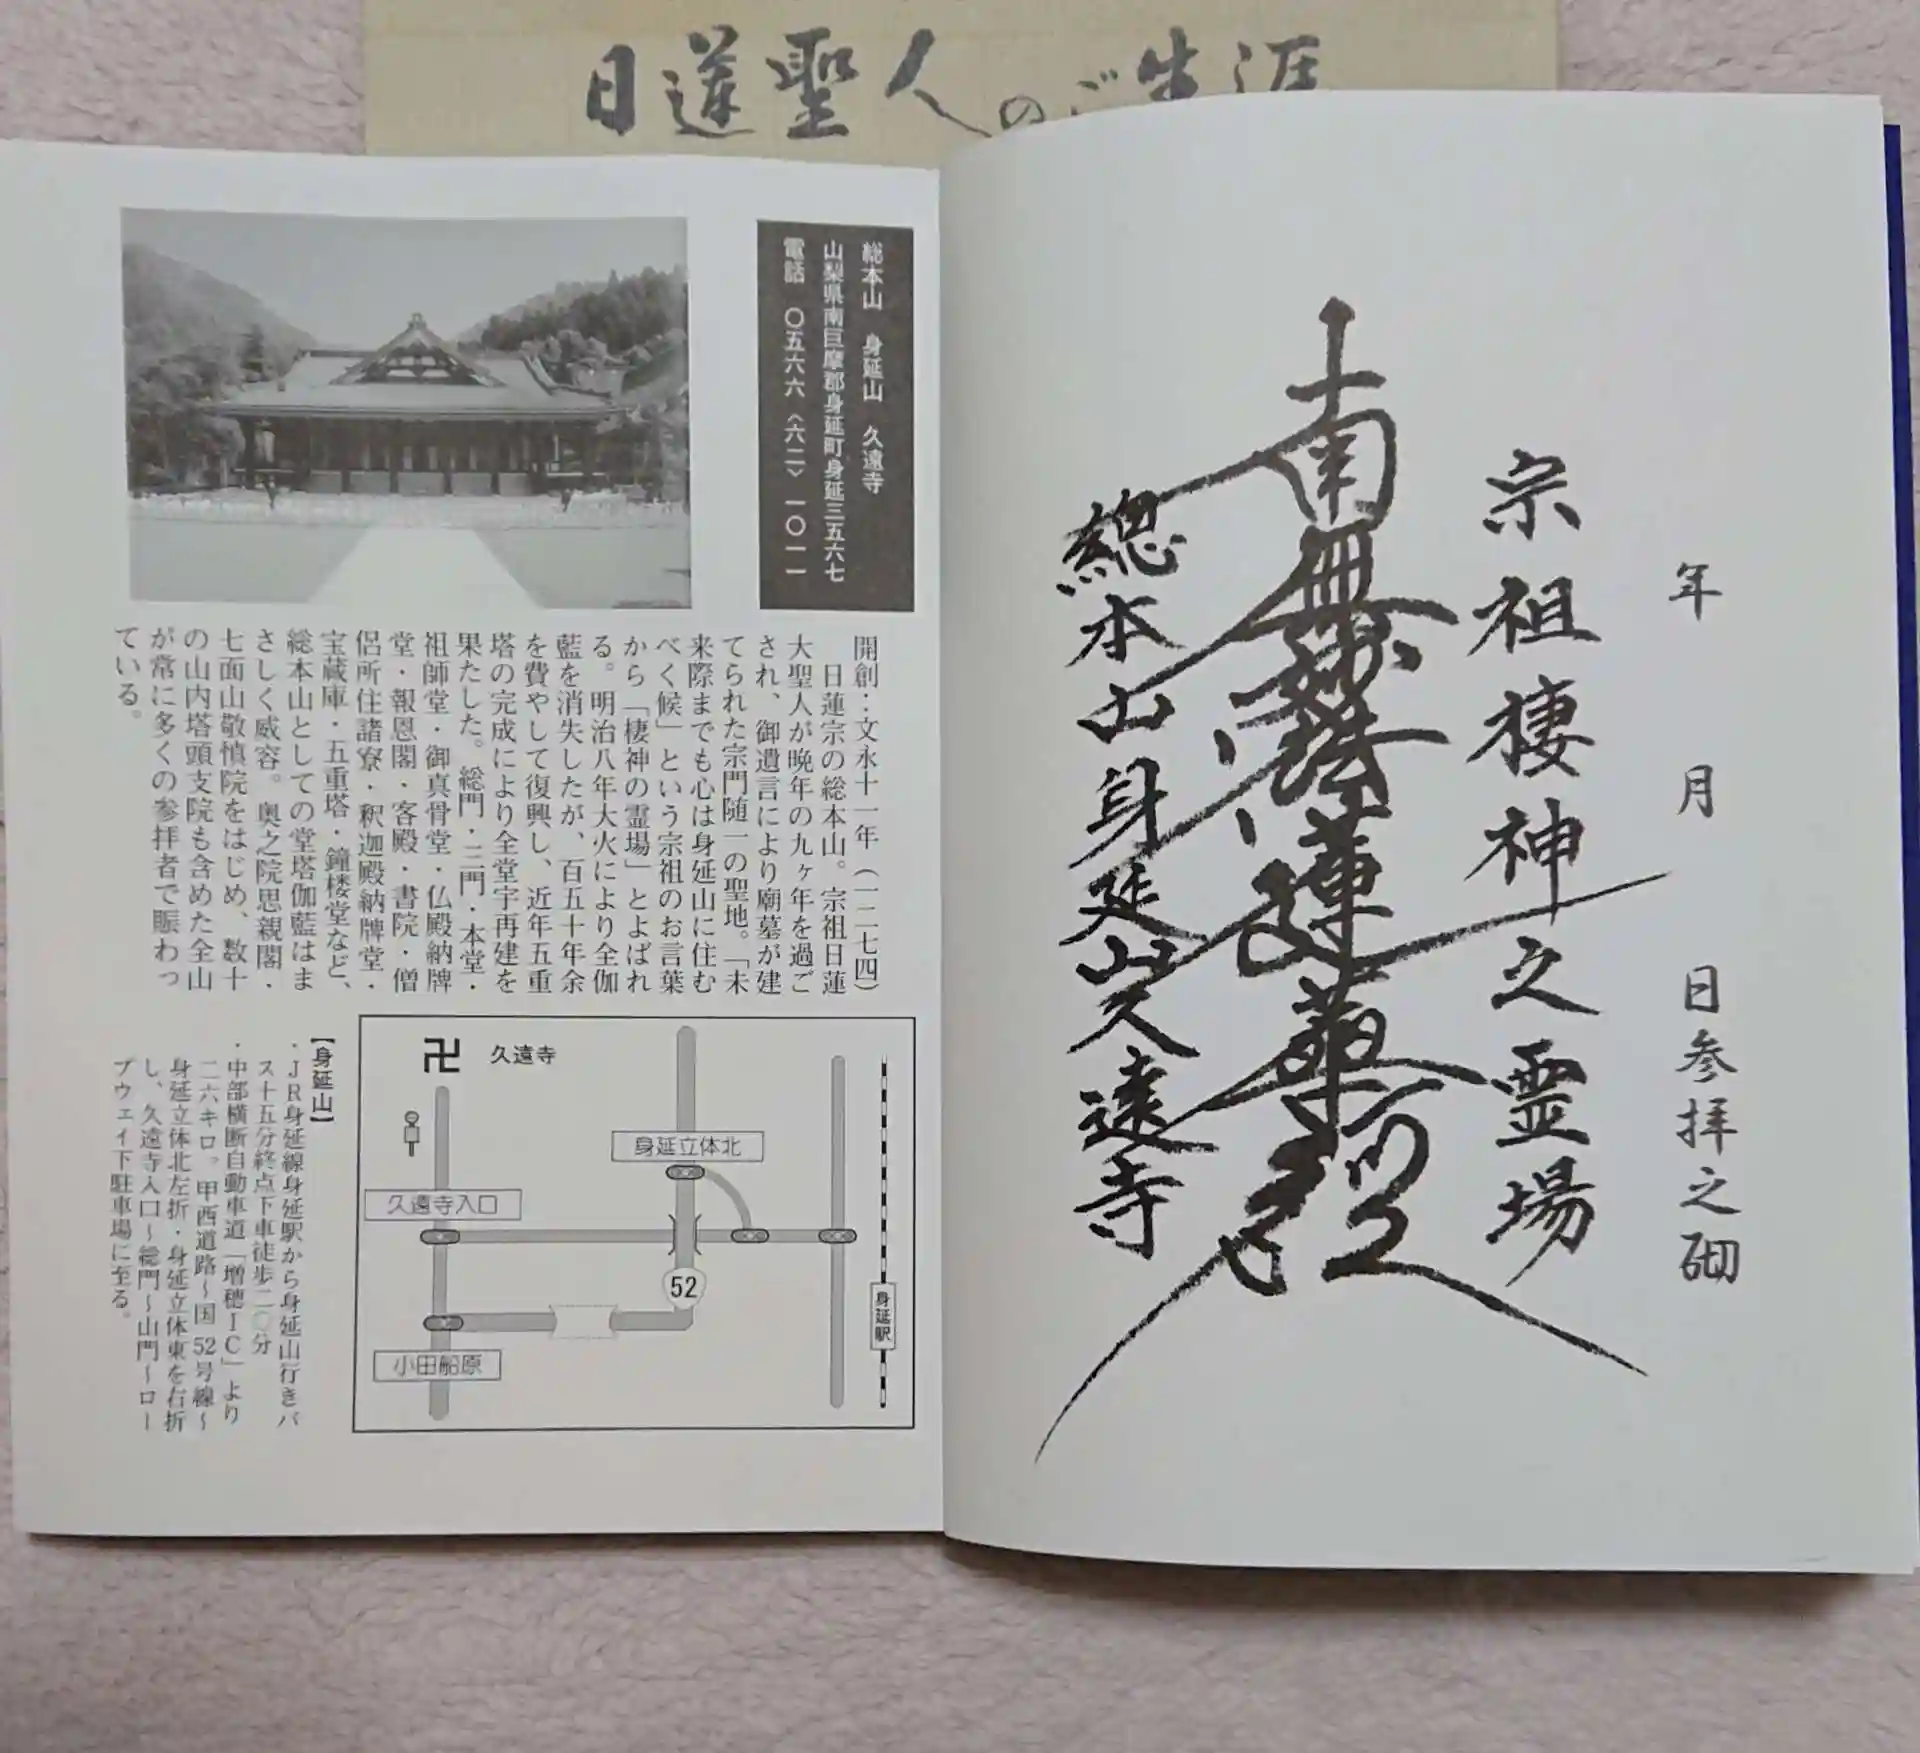 日蓮聖人のご生涯
年 月 日参拝之砌
宗祖棲神之霊場
南無妙法蓮華経
総本山身延山久遠寺
総本山 身延山 久遠寺
山梨県南巨摩郡身延町身延三五六七
電話 〇五六六〈六二〉一〇一一
開創：文永十一年（一二七四）
日蓮宗の総本山。宗祖日蓮
大聖人が晩年の九ヶ年を過ご
され、御遺言により廟墓が建
てられた宗門随一の聖地。「未
来際までも心は身延山に住む
べく候」という宗祖のお言葉
から「棲神の霊場」とよばれ
る。明治八年大火により全伽
藍を消失したが、百五十年余
を費やして復興し、近年五重
塔の完成により全堂宇再建を
果たした。総門・三門・本堂・
祖師堂・御真骨堂・仏殿納牌
堂・報恩閣・客殿・書院・僧
侶所住諸寮・釈迦殿納牌堂・
宝蔵庫・五重塔・鐘楼堂など、
総本山としての堂塔伽藍はま
さしく威容。奥之院思親閣・
七面山敬慎院をはじめ、数十
の山内塔頭支院も含めた全山
が常に多くの参拝者で賑わっ
ている。
卍 久遠寺
身延立体北
久遠寺入口
52
身延駅
小田船原
【身延山】
・ＪＲ身延線身延駅から身延山行きバ
ス十五分終点下車徒歩二〇分
・中部横断自動車道「増穂ＩＣ」より
二六キロ。甲西道路～国52号線～
身延立体北左折・身延立体東を右折
し、久遠寺入口～総門～山門～ロー
プウェイ下駐車場に至る。